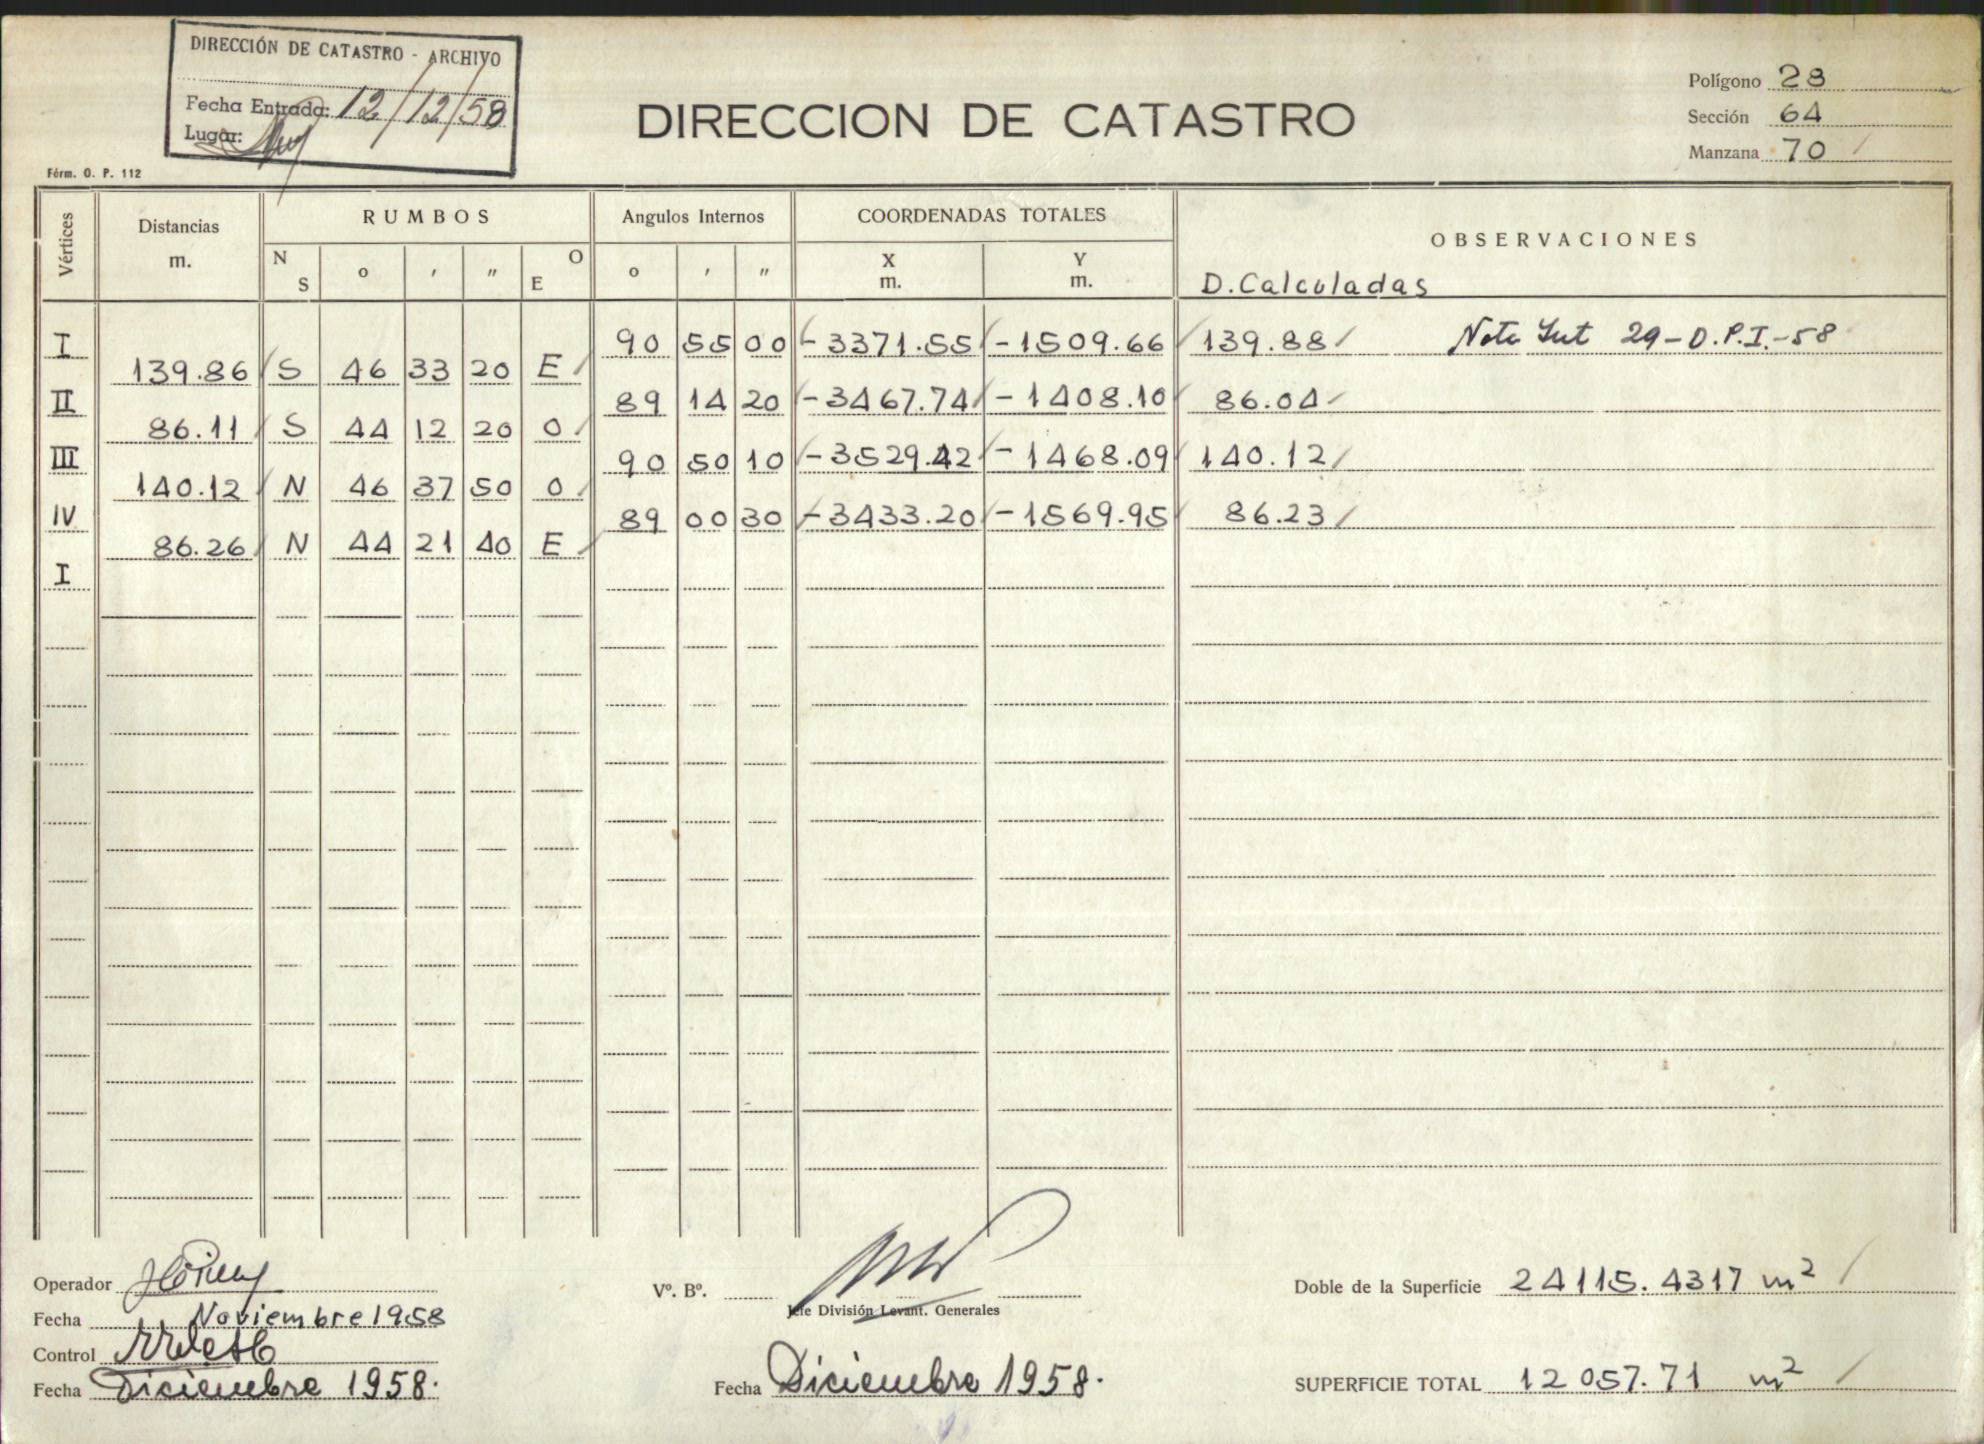 DIRECCIÓN DE CATASTRO - ARCHIVO
Fecha Entrada: 12/12/58
Lugar:
DIRECCION DE CATASTRO
Polígono 28
Sección 64
Manzana 70
Fórm. O. P. 112
Vértices Distancias m. RUMBOS Angulos Internos COORDENADAS TOTALES OBSERVACIONES
N S o ' " O E o ' " X m. Y m. D. Calculadas
I 90 55 00 -3371.55 -1509.66 139.88 Nota Int 29-D.P.I.-58
139.86 S 46 33 20 E
II 89 14 20 -3467.74 -1408.10 86.04
86.11 S 44 12 20 O
III 90 50 10 -3529.42 -1468.09 140.12
140.12 N 46 37 50 O
IV 89 00 30 -3433.20 -1569.95 86.23
86.26 N 44 21 40 E
I
Operador
Fecha Noviembre 1958
Control
Fecha Diciembre 1958.
Vº. Bº.
Jefe División Levant. Generales
Fecha Diciembre 1958.
Doble de la Superficie 24115.4317 m²
SUPERFICIE TOTAL 12057.71 m²